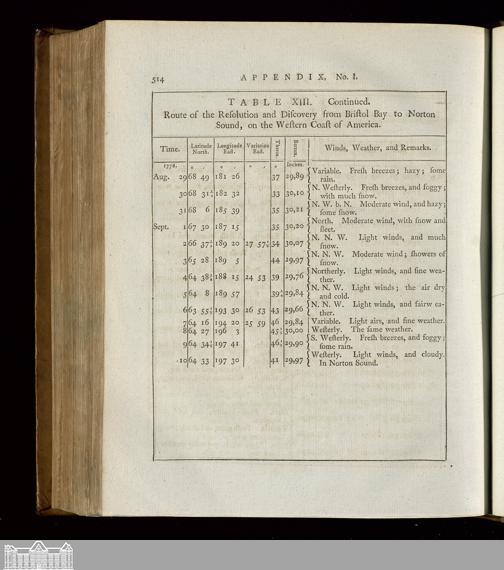 514
APPENDIX, No. I.
TABLE XIII. Continued.
Route of the Reſolution and Diſcovery from Briſtol Bay to Norton
Sound, on the Weſtern Coaſt of America.
Time. Latitude North. Longitude Eaſt. Variation Eaſt. Therm. Barom. Winds, Weather, and Remarks.
1778. ° ′ ° ′ ° ′ ° Inches.
Aug. 29 68 49 181 26 37 29,89 Variable. Freſh breezes; hazy; ſome
rain.
30 68 31½ 182 32 33 30,10 N. Weſterly. Freſh breezes, and foggy;
with much ſnow.
31 68 6 185 39 35 30,21 N. W. b. N. Moderate wind, and hazy;
ſome ſnow.
Sept. 1 67 30 187 15 35 30,20 North. Moderate wind, with ſnow and
ſleet.
2 66 37½ 189 20 17 57½ 34 30,07 N. N. W. Light winds, and much
ſnow.
3 65 28 189 5 44 29,97 N. N. W. Moderate wind; ſhowers of
ſnow.
4 64 38½ 188 15 24 53 39 29,76 Northerly. Light winds, and fine wea-
ther.
5 64 8 189 57 39½ 29,84 N. N. W. Light winds; the air dry
and cold.
6 63 55½ 193 30 26 53 43 29,66 N. N. W. Light winds, and fairw ea-
ther.
7 64 16 194 20 25 59 46 29,84 Variable. Light airs, and fine weather.
8 64 27 196 3 45½ 30,00 Weſterly. The ſame weather.
9 64 34½ 197 41 46½ 29,90 S. Weſterly. Freſh breezes, and foggy;
ſome rain.
10 64 33 197 30 41 29,97 Weſterly. Light winds, and cloudy.
In Norton Sound.